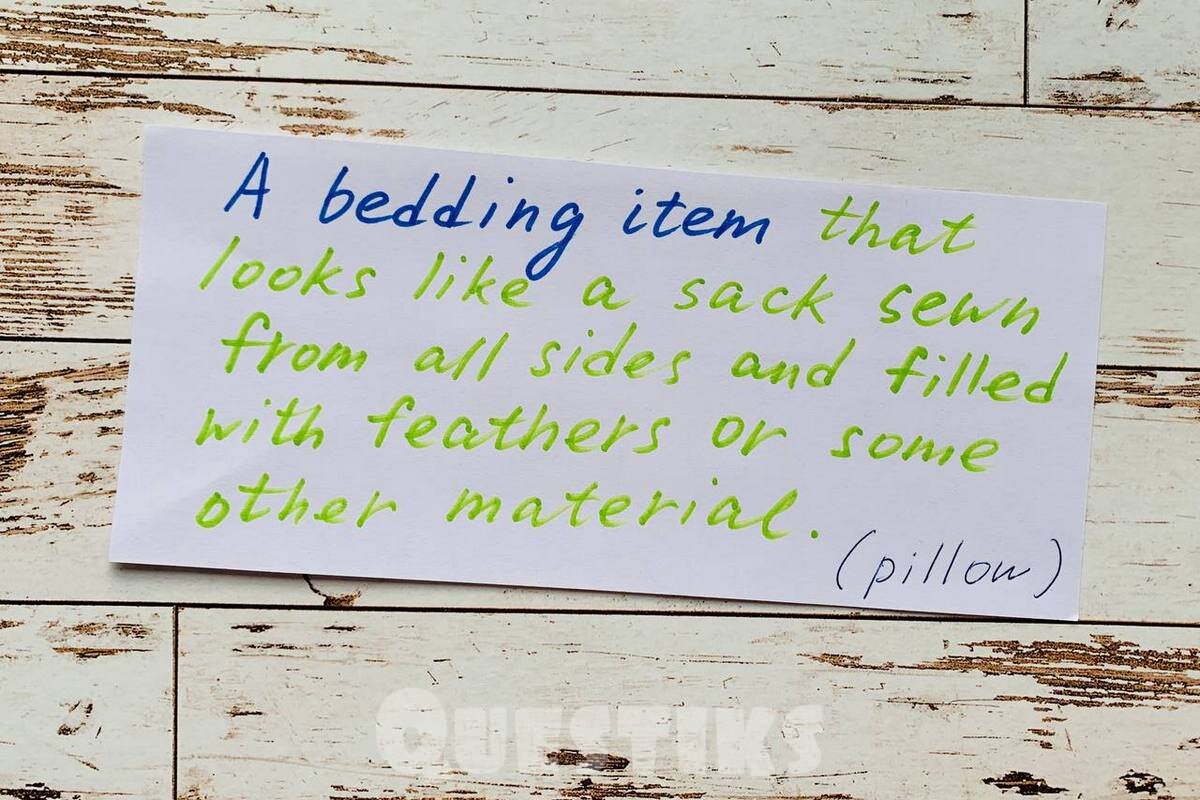 A bedding item that
looks like a sack sewn
from all sides and filled
with feathers or some
other material.
(pillow)
QUESTIKS